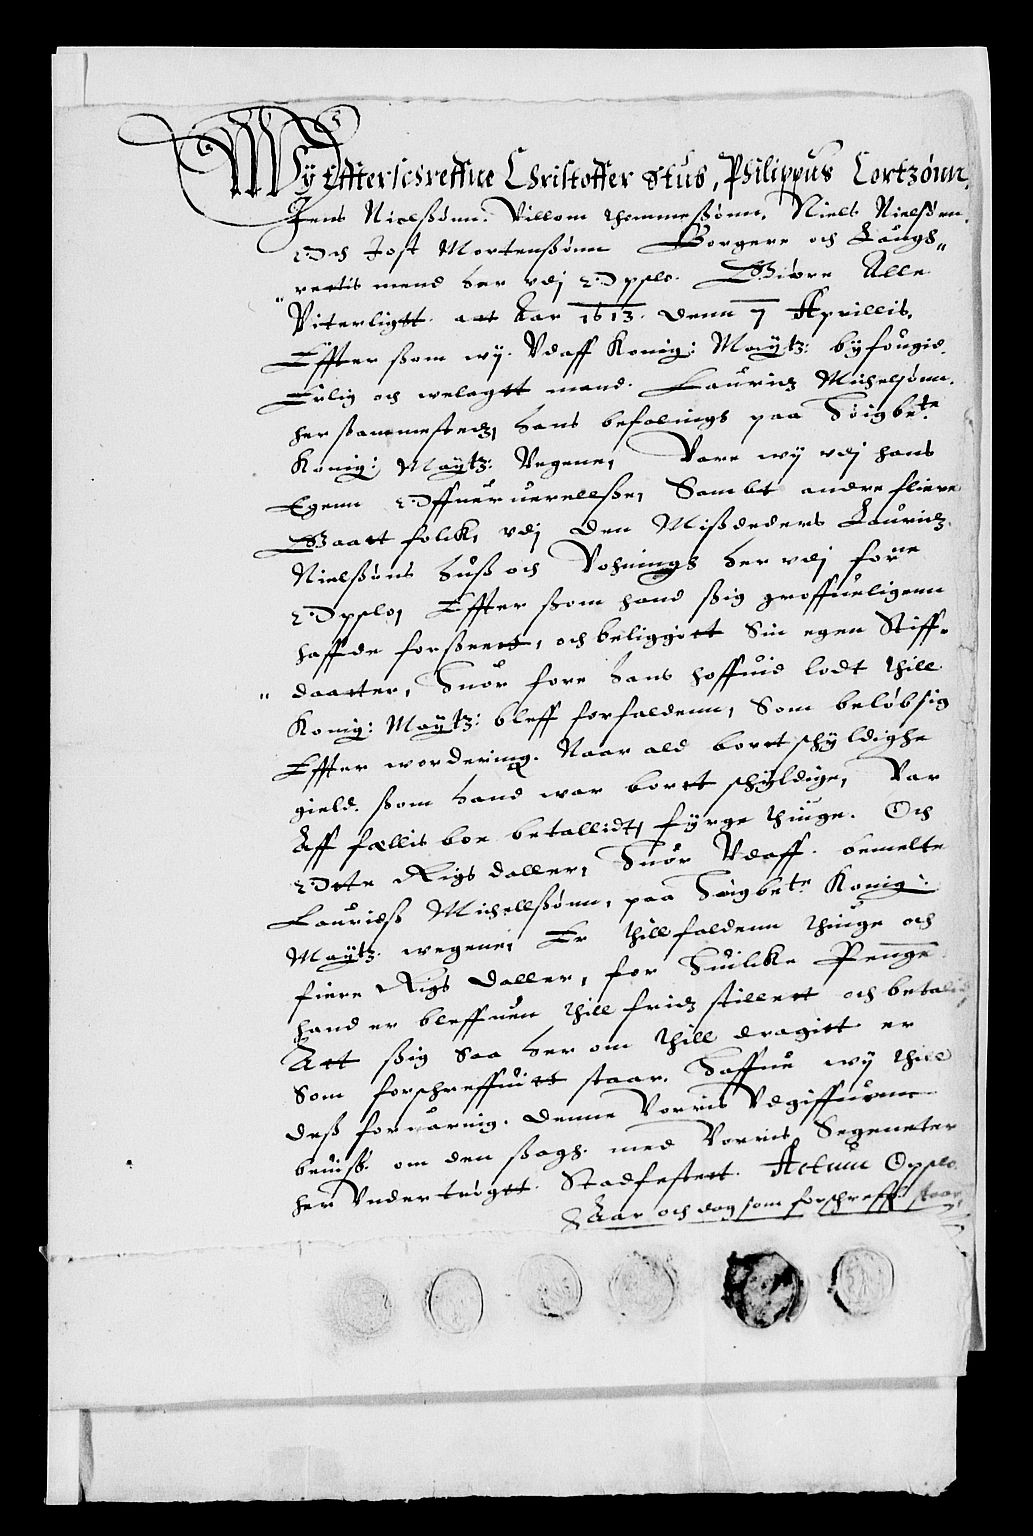 Wÿ Effterschreffne Christoffer Stub, Philippus Cortzønn,
Jens Nielssønn. Villom Thommessønn, Niels Nielsøen
Och Jost Mortenssønn Borgere och Laugh„
„rettis mend her vdj Opslo. Giøre Alle
Viterligtt att Aar 1613. denn 7 Aprillis,
Effter ssom wÿ Vdaff Konig: Maÿtz: byfougid
Erlig och welagtt mand. Lauridz Michelsønn.
her ssammestedz, hans befalings paa Høigbete
Konig: Maÿtz: Vegene, Vare wÿ vdj hans
Egenn Offueruerellsse, Sambt andre fliere
Gaatt folck, vdj den Missdeders Lauridz
Nielssøns huss och Vohnings her vdj forne
Opslo, Effter ssom hand ssig groffueligenn
haffde forsseett, och beliggitt Sin egen Stiff„
„daatter, Huor fore hans hoffuid lodt thill
Konig: Maÿtz: bleff forfaldenn, Som beløb sig
Effter wordering. Naar ald bortschÿldighe
gield. ssom hand war bortt schÿldige, Var
Aff fællis boe betallidt, fÿrge thiuge. Och
Otte Rigs daller, Huor Vdaff. bemelte
Lauridss Michellssønn, paa Høigbete Konig:
Maÿtz. wegene, Er thillfaldenn thiuge och
fiere Rigs daller, for Huilcke Penge
hand er bleffuen thill fridz stillett och betalid,
Att ssig saa her om thill dragitt er
Som forschreffuitt staar. Haffue wÿ thill
dess foruaring. denne Vorris Vdgiffuenn
beuiss. om den ssags. med Vorris Segeneter
her Vnder trøgtt. Stadfestett. Actum Opslo.
Aar och dag som forschreff. staar,